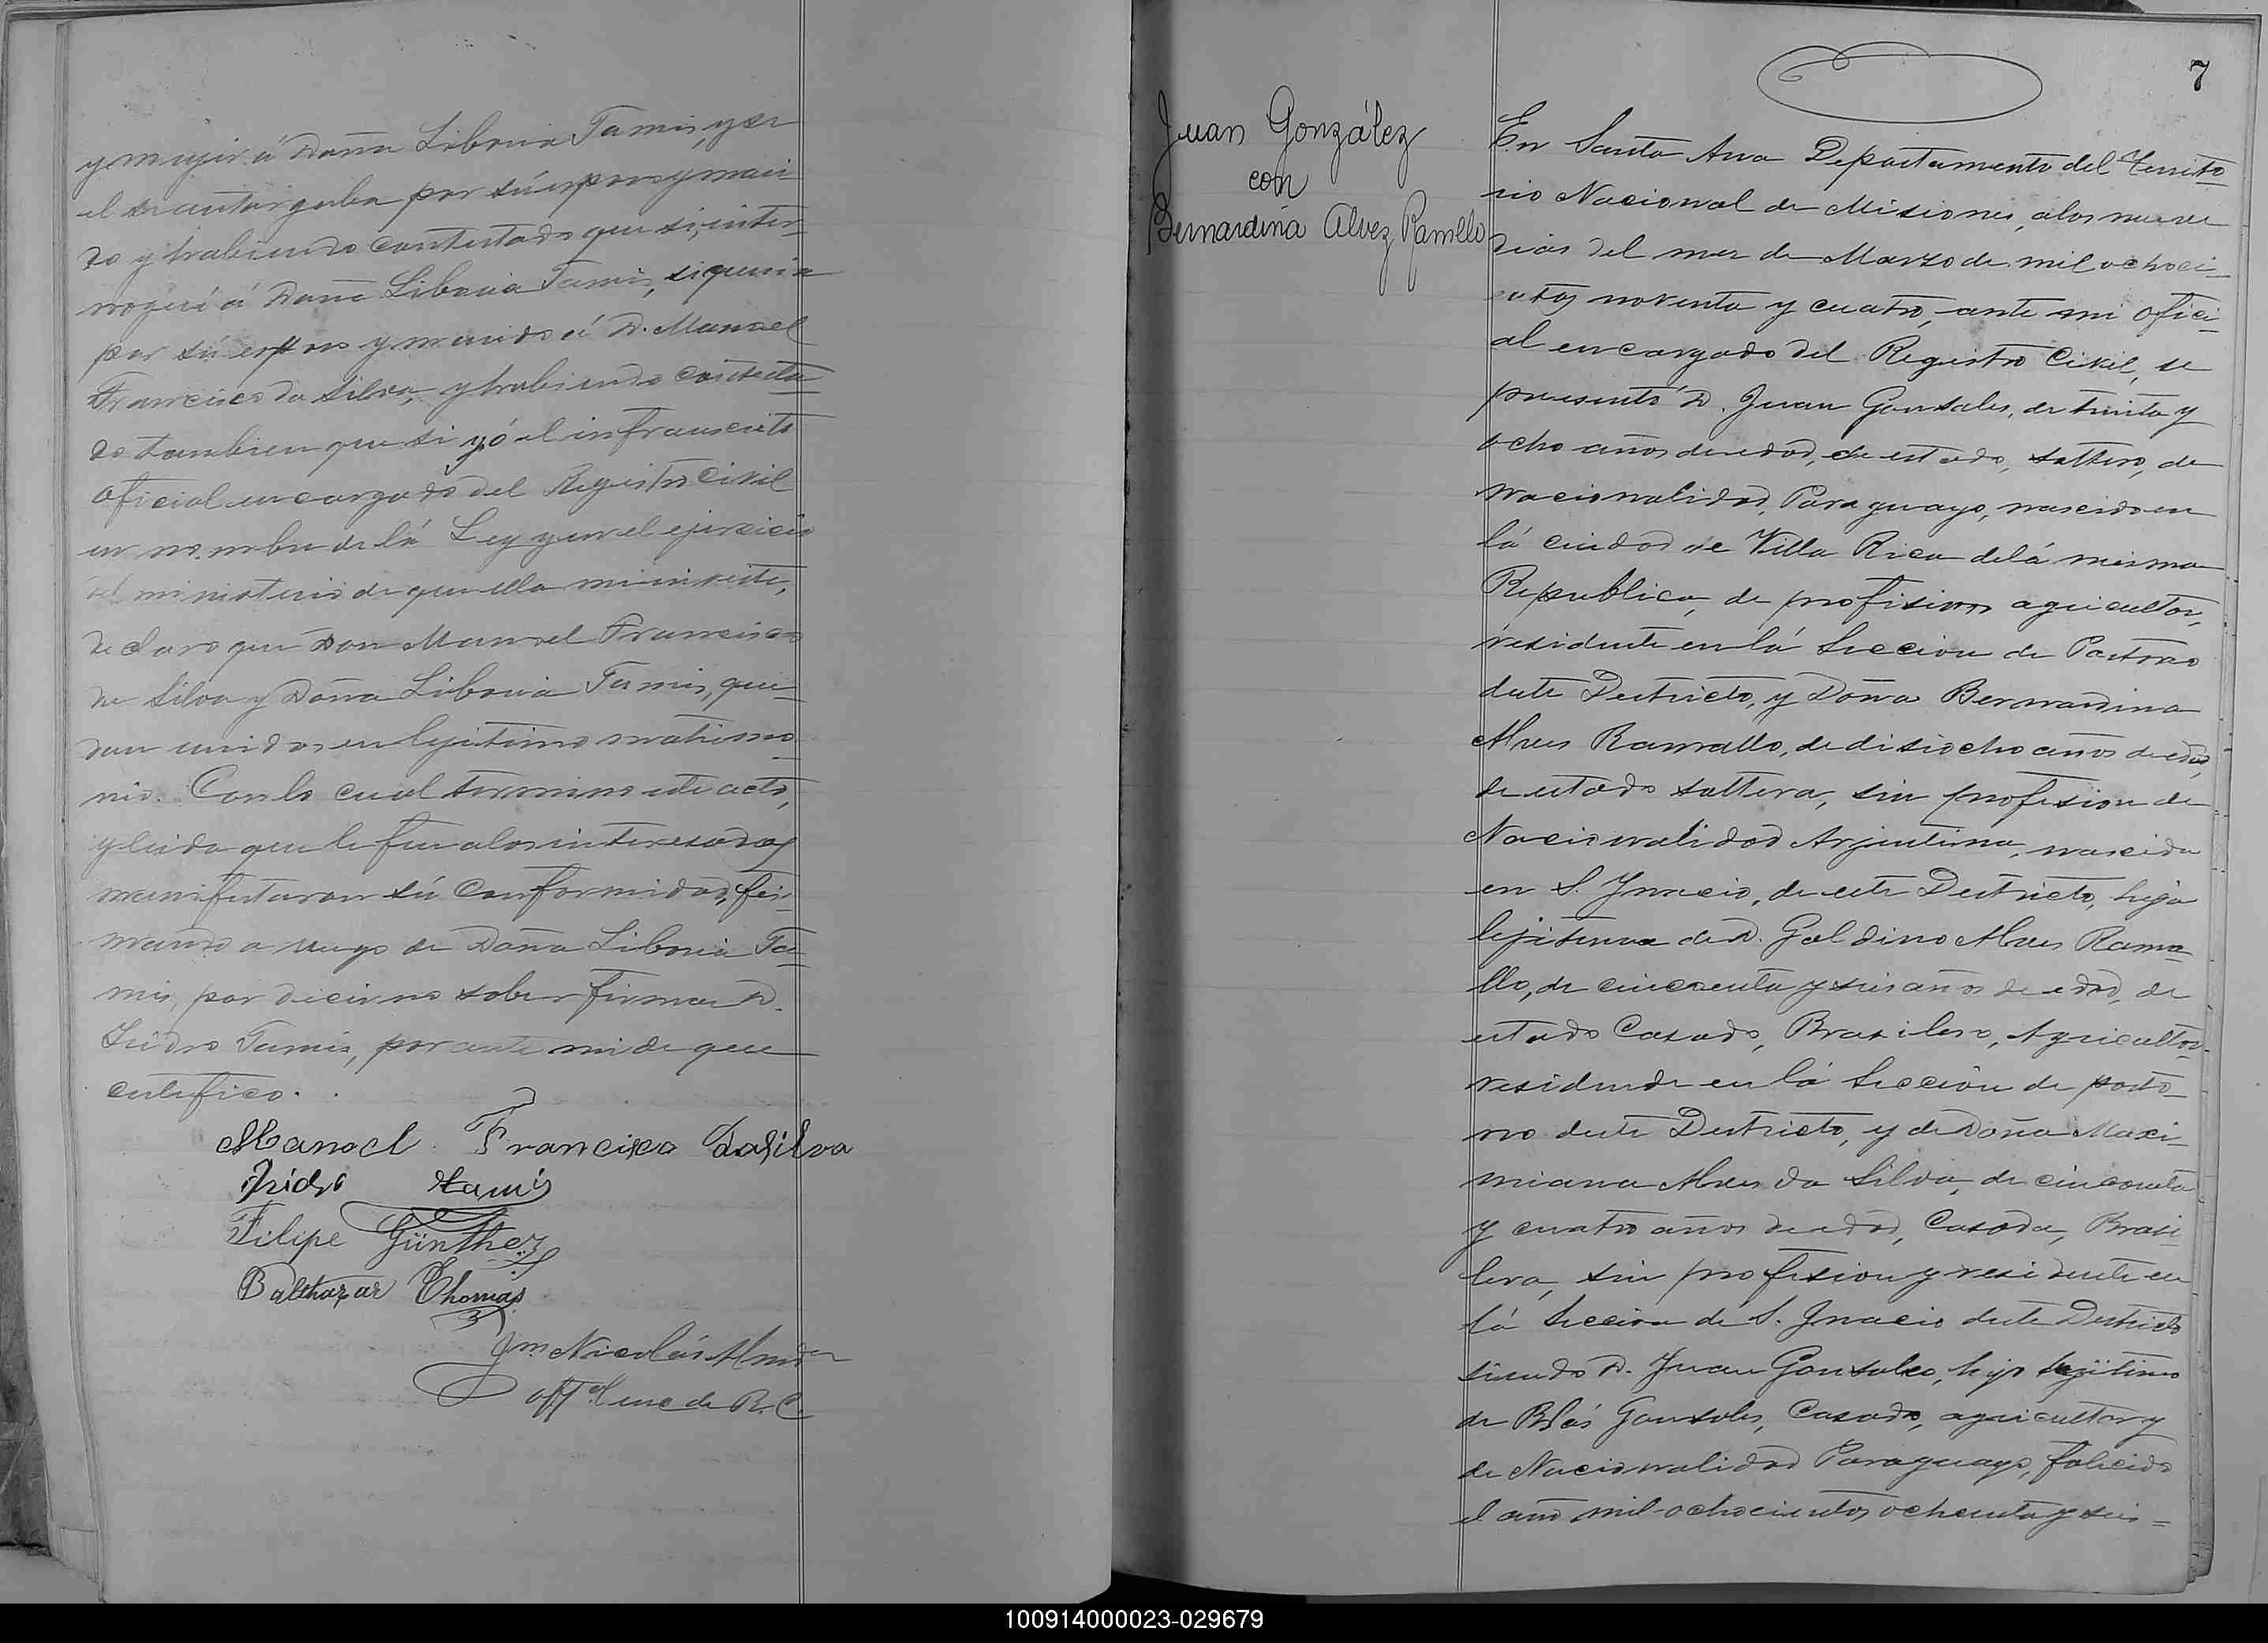 y mujer á Doña Liboria Tamis, y se
el se autorgaba por sú esposo y mari
do y habiendo contestado que si, inter-
rogeré á Doña Liboria Tamis, si queria
por sú esposo y marido á D. Manoel
Francisco da Silva, y habiendo contesta
do tambien que si yó el infranscrito
oficial encargado del Registro Civil
en nombre de lá Ley y en el ejersicio
del ministerio de que ella me inviste,
declaro que Don Manoel Francisco
da Silva y Doña Liboria Tamis, que-
dan unidos en lejitimo matrimo
nio. Con lo cual termino este acto,
y leida que le fue a los interesados
manifestaron sú conformidad, fir-
mando a ruego de Doña Liboria Ta
mis, por decir no saber firmar D.
Isidro Tamis, por ante mi de que
certifico.
Manoel Francisco Dasilva
Isidro Tamis
Filipe Günther
Balthazar Thomas
Jm Nicolás
Offel enc de R. C.
7
Juan González
con
Bernardina Alvez Ramello
En Santa Ana Departamento del Territo
rio Nacional de Misiones, a los nueve
dias del mes de Marzo de mil ochoci-
entos noventa y cuatro, ante mi ofici-
al encargado del Registro Civil, se
presentó D. Juan Gonsales, de treinta y
ocho años de edad, de estado, soltero, de
nacionalidad, Paraguayo, nascido en
lá ciudad de Villa Rica de lá misma
Republica, de profision agricultor,
residente en lá Seccion de Portono
deste Destricto, y Doña Bernardina
Alves Ramallo, de disiocho años de edad,
de estado soltera, sin profesion de
Nacionalidad Arjentina, nascida
en S. Ynacio, de este Destricto, hija
lejitima de D. Galdino Alves Rama-
llo, de cincoenta y seis años de edad, de
estado Casado, Brasilero, Agricultor
residende en lá Seccion de porto-
no deste Destricto, y de Doña Maxi-
miana Alves da Silva, de cincoenta
y cuatro años de edad, Casada, Brasi-
lera, sin profesion y residente en
lá Seccion de S. Ynacio deste Destricto
siendo D. Juan Gonsales, hijo lejitimo
de Blás Gonsales, Casado, agricultor y
de Nacionalidad Paraguayo, falicido
el año mil ochocientos ochenta y seis=
100914000023-029679